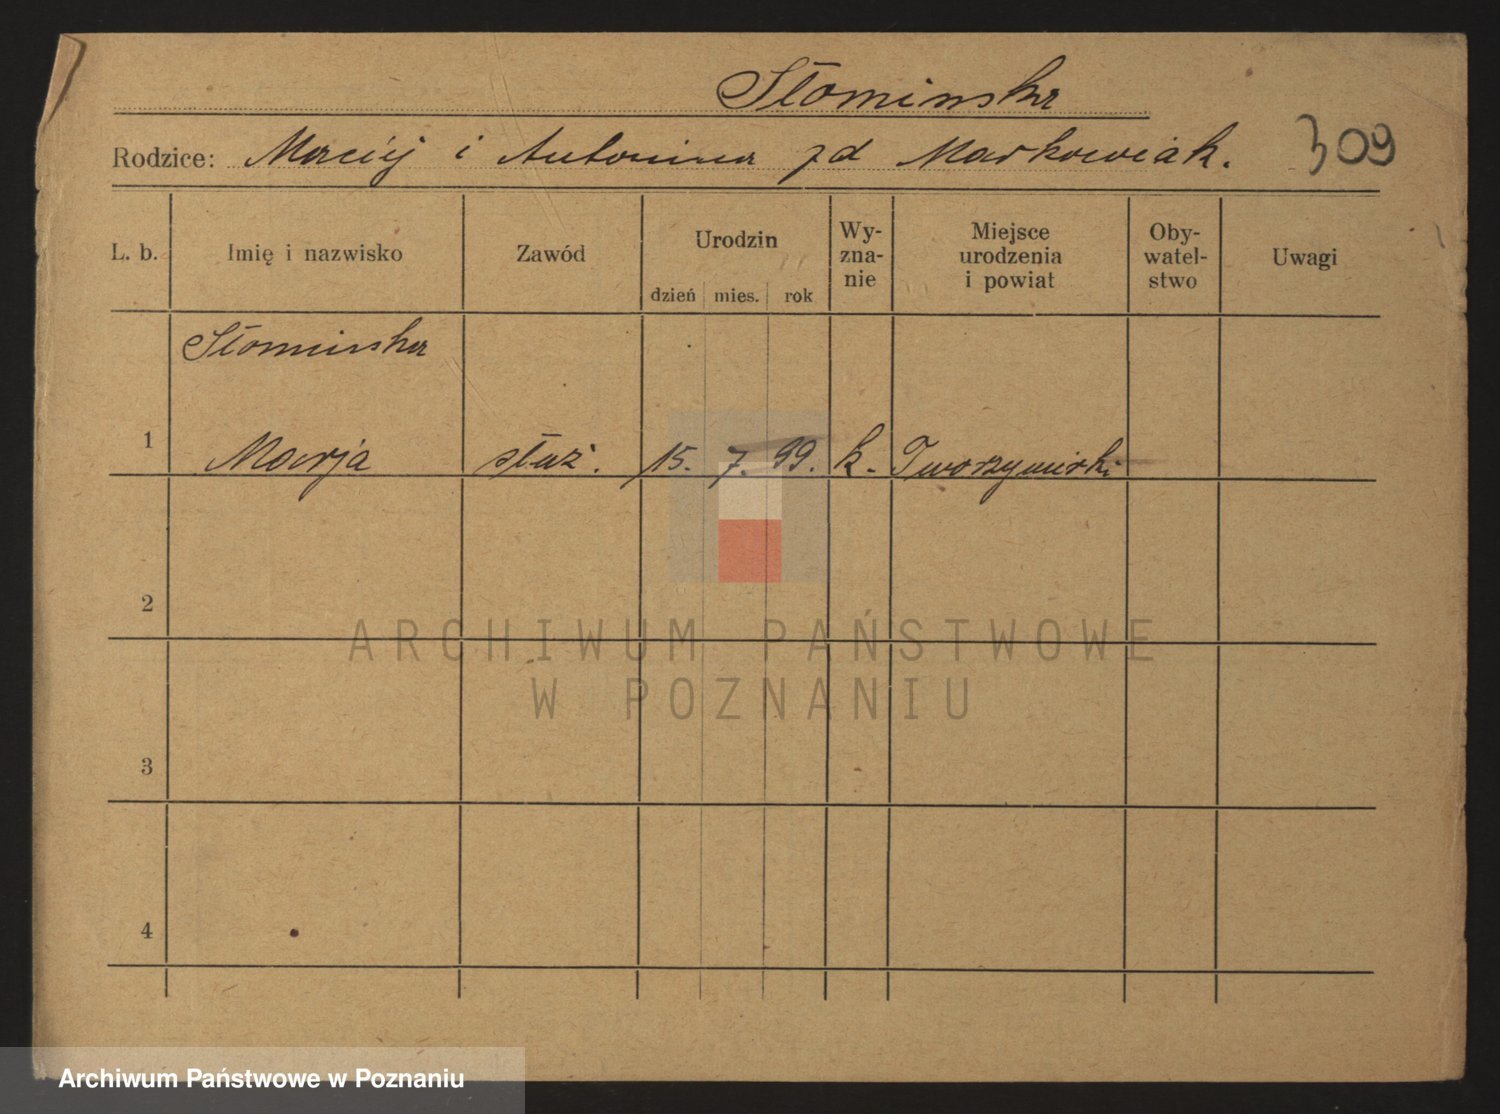 Słominska
Rodzice: Maciej i Antonina zd Markowiak. 309
L. b. Imię i nazwisko Zawód Urodzin dzień mies. rok Wy-zna-nie Miejsce urodzenia i powiat Oby-watel-stwo Uwagi
Słominska
1 Marja służ. 15. 7. 99. k. Tworzymirki
2
ARCHIWUM PAŃSTWOWE
W POZNANIU
3
4
Archiwum Państwowe w Poznaniu